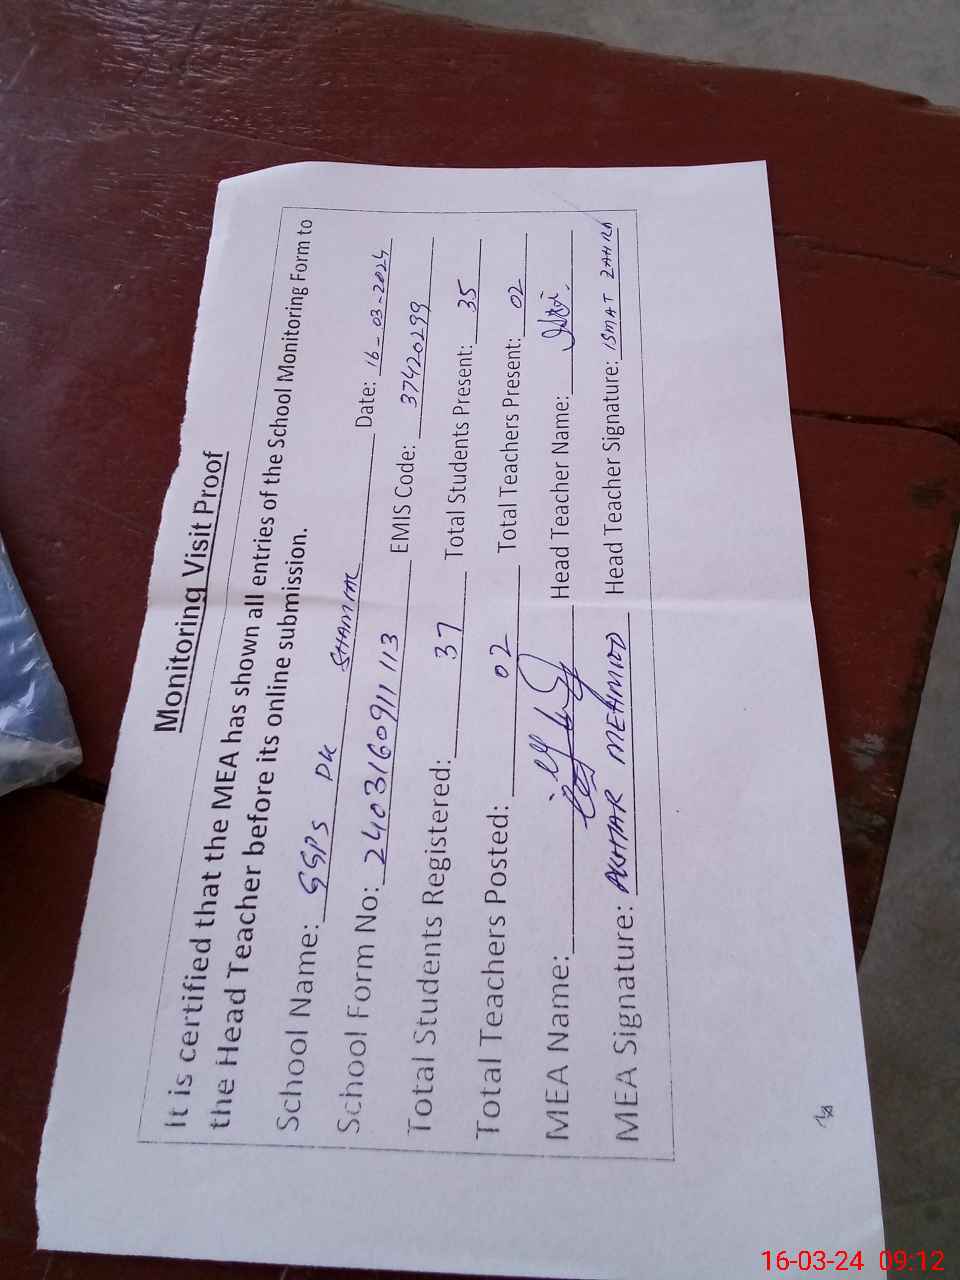 Monitoring Visit Proof
It is certified that the MEA has shown all entries of the School Monitoring Form to
the Head Teacher before its online submission.
School Name: GGPS DK SHAMIR Date: 16-03-2024
School Form No: 2403160911113 EMIS Code: 37420299
Total Students Registered: 37 Total Students Present: 35
Total Teachers Posted: 02 Total Teachers Present: 02
MEA Name: Head Teacher Name:
MEA Signature: AKHTAR MEHMOOD Head Teacher Signature: ISMAT ZAHRA
16-03-24 09:12